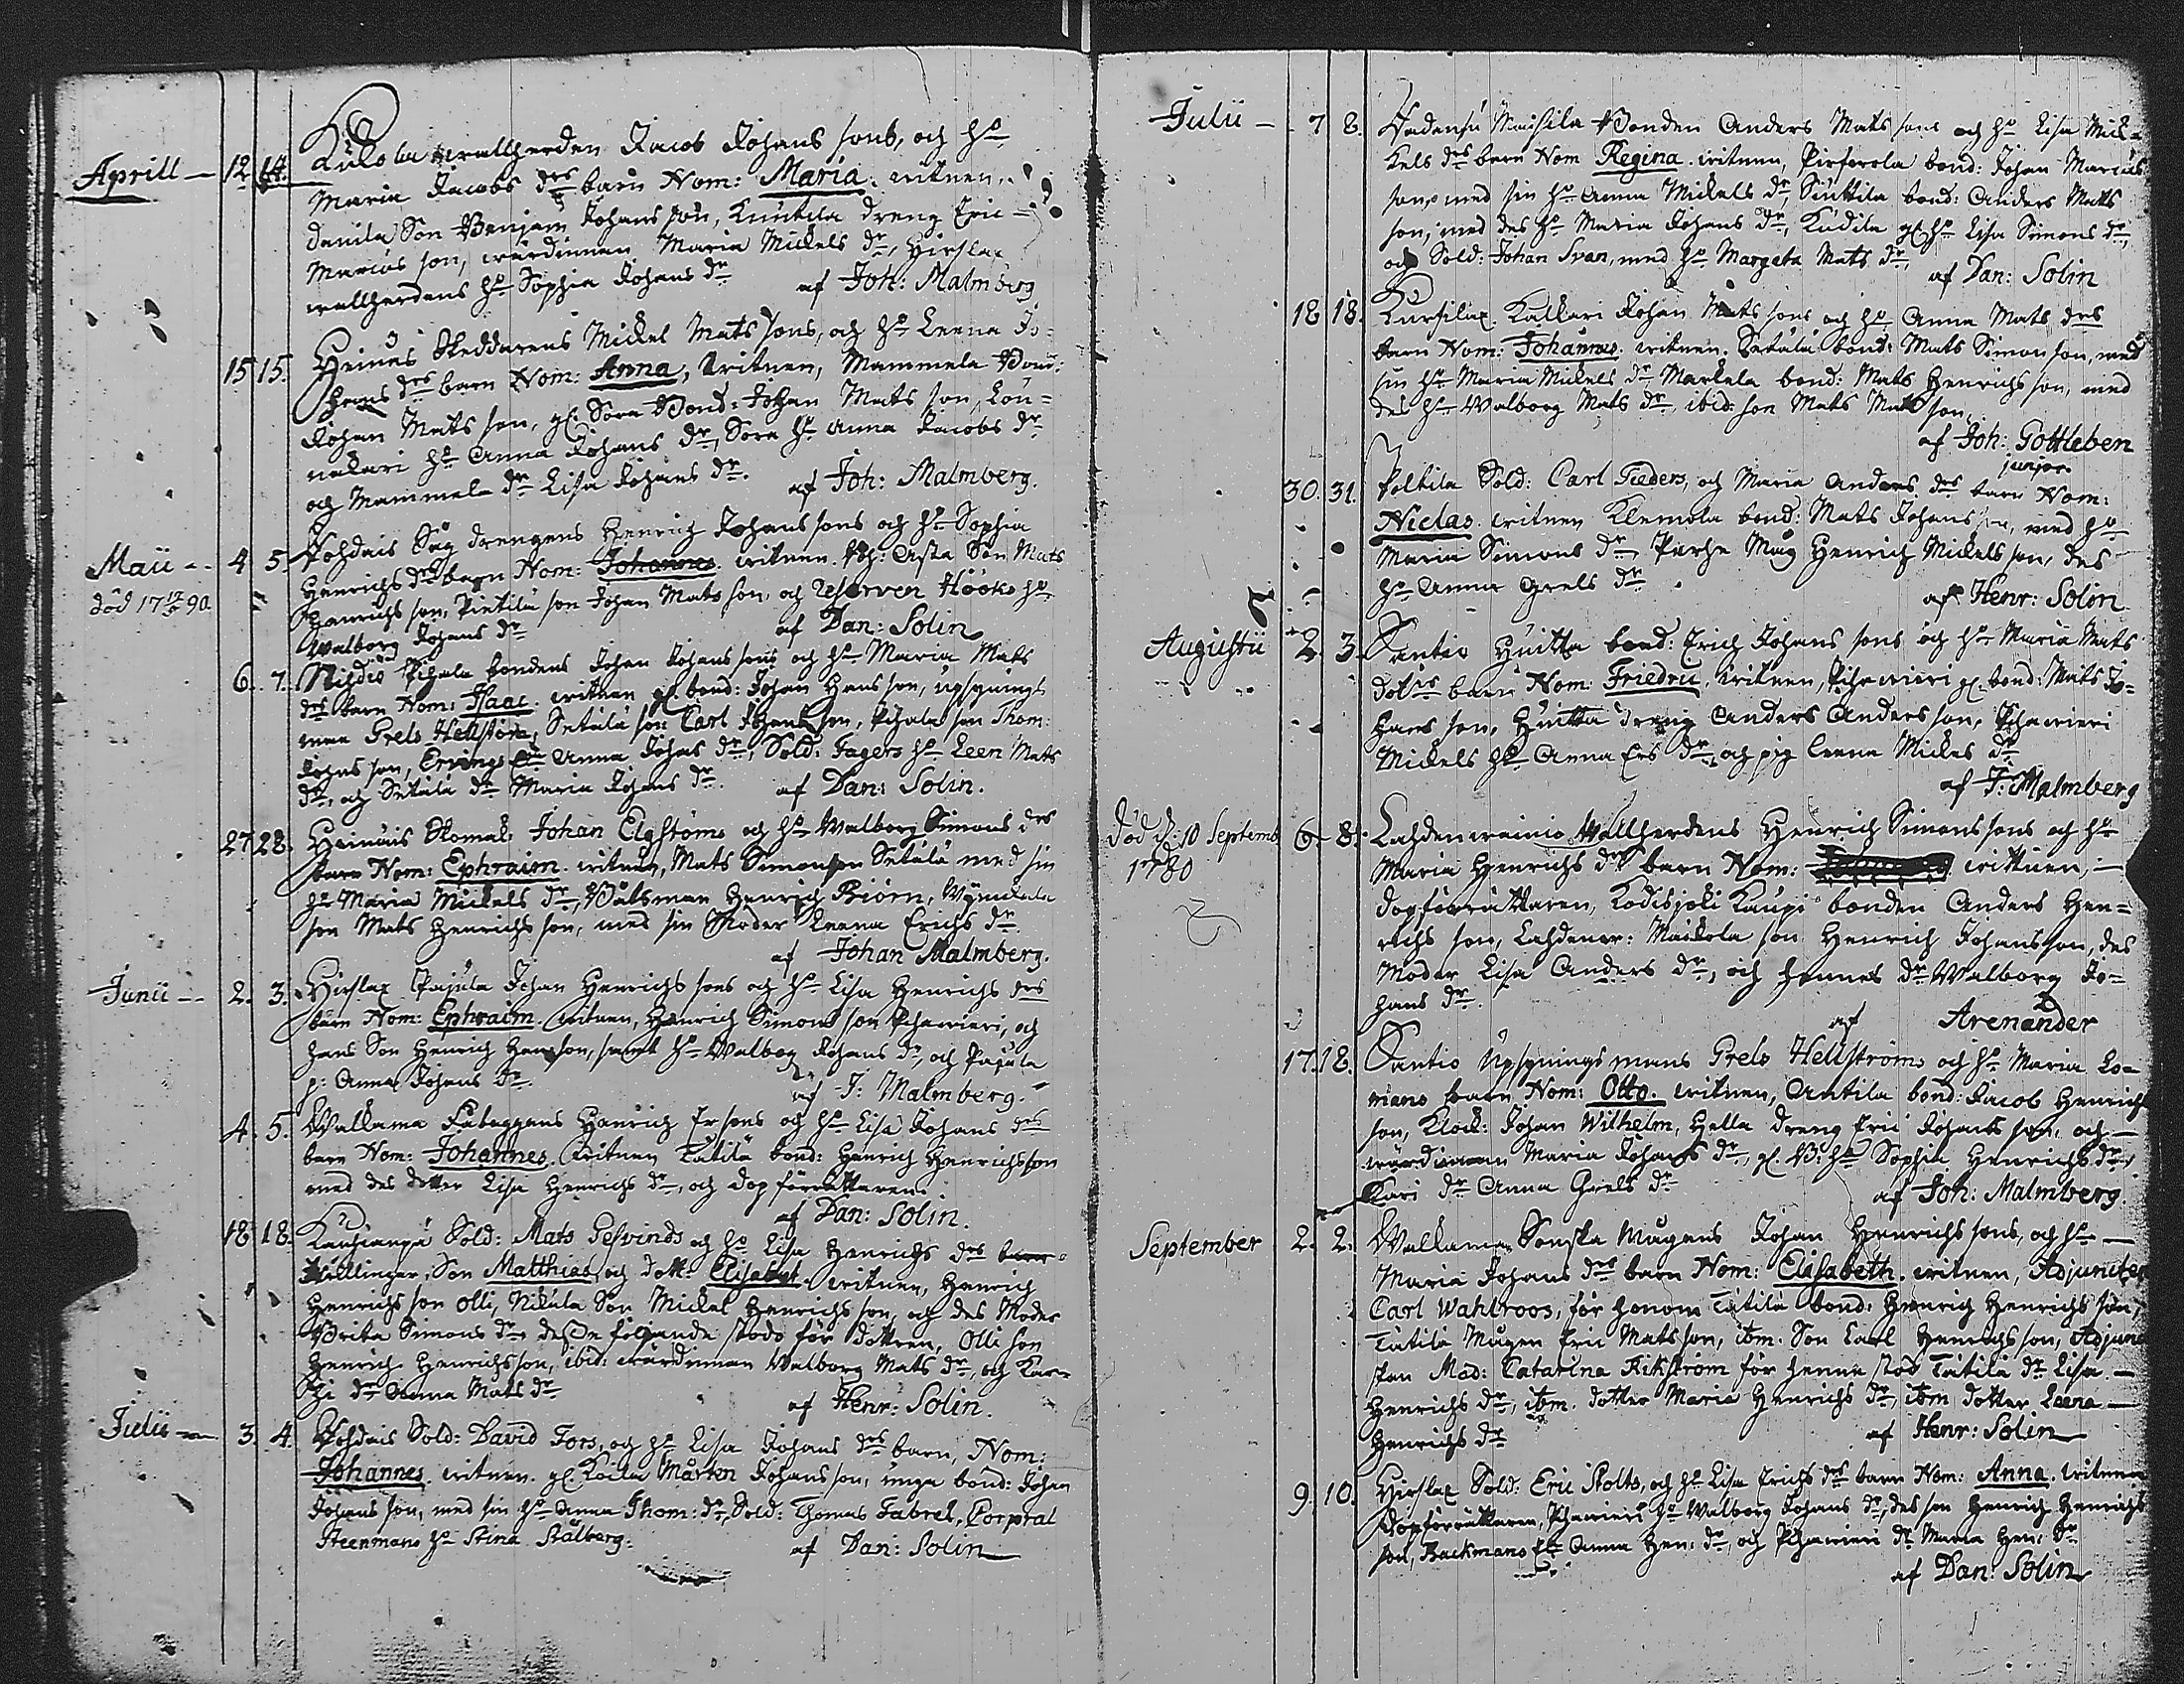 Aprill — 12 14. Kukola wallherden Jacob Johans sons, och hº
Maria Jacobs drs barn Nom: Maria. witnen,
danila Son Benjam Johans son, Knutila dreng Eric
Marcus son, wärdinnan Maria Mickels dr, Hirslax
wallherdens hº Sophia Johans dr af Joh: Malmberg
15 15. Heinus Skeddarens Mickel Mats sons, och hº Leena Jo-
hans drs barn Nom: Anna, witnen, Mammela Bond:
Johan Mats son, gl. Sora Bond: Johan Mats son, Lou-
nakari hº Anna Johans dr, Sora hº Anna Jacobs dr
och Mammela dr Lisa Johans dr. af Joh: Malmberg.
Maii -- 4 5. Pohdais Såg drengens Henrich Johans sons och hº Sophia
död 17 90. Henrichs drs barn Nom: Johannes. witnen. Asta Son Mats
Henrichs son, Pietilä son Johan Mats son, och Reserven Hööks hº
Walborg Johans dr af Dan: Solin
6. 7. Pihala bondens Johan Johans sons och hº Maria Mats
drs barn Nom: Isaac. witnen gl. bond: Johan Hans son, upsynings
man Grels Hellström, Setälä son Carl Johans son, Pihala son Thom:
Johans son, Ervings Anna Johans dr, Sold: Fagers hº Leen Mats
dr, och Setälä dr Maria Johans dr. af Dan: Solin.
27 28. Heinuis Skomak: Johan Elgströms och hº Walborg Simons drs
barn Nom: Ephraim. witnen, Mats Simonson Setälä med sin
hº Maria Mickels dr, Båtsman Henrich Biörn,
son Mats Henrichs son, med sin Moder Leena Erichs dr.
af Johan Malmberg.
Junii -- 2. 3. Hirslax Pajula Johan Henrichs sons och hº Lisa Henrichs drs
barn Nom: Ephraim. witnen, Henrich Simons son Pihawieri, och
hans Son Henrich Henr son, samt hº Walborg Johans dr, och Pajula
p: Anna Johans dr. af J: Malmberg.
4. 5. Wallama Henrich Ersons och hº Lisa Johans drs
barn Nom: Johannes. witnen Tätilä bond: Henrich Henrichsson
med des dotter Lisa Henrichs dr, och dop förrättaren.
af Dan: Solin.
18 18. Sold: Mats Gesvinds och hº Lisa Henrichs drs barn
Twillingar, Son Matthias, och dott: Elisabet. witnen, Henrich
Henrichs son Olli, Nikula Son Mickel Henrichs son, och des Moder
Brita Simons dr, desse följande stodo för dottren, Olli son
Henrich Henrichsson, ibid: wärdinnan Walborg Mats dr, och Kar-
hi dr Anna Mats dr af Henr: Solin.
Julii — 3. 4. Pohdais Sold: David Fors, och hº Lisa Johans drs barn, Nom:
Johannes. witnen. gl. Koila Mårten Johansson, unga bond: Johan
Johans son, med sin hº Anna Thom: dr, Sold: Thomas Fabrel, Corpral
Steenmans hº Stina Stålberg: af Dan: Solin
Julii — 7 8. Maisila Bonden Anders Mats sons och hº Lisa Mic-
kels drs barn Nom Regina. witnen, bond: Johan Marcus
son, med sin hº Anna Mickels dr, Sluttila bond: Anders Mats
son, med des hº Maria Johans dr, Kudila gl hº Lisa Simons dr,
och Sold: Johan Svan, med hº Margeta Mats dr, af Dan: Solin
18 18. Kursilax Kallkari Johan Mats sons och hº Anna Mats drs
barn Nom: Johannes. witnen. Setälä bond: Mats Simonson, med
sin hº Maria Mickels dr Markela bond: Mats Henrichs son, med
des hº Walborg Mats dr, ibid: son Mats Mats son,
af Joh: Gottleben
junior
30. 31. Poltila Sold: Carl Fieders, och Maria Anders drs barn Nom:
Niclas. witnen Klemola bond: Mats Johans son, med hº
Maria Simons dr, Måg Henrich Mickels son, des
hº Anna Grels dr
af Henr: Solin.
Augustii 2. 3. Santio Huitta bond: Erich Johans sons och hº Maria Mats
dotrs barn Nom: Friedric. witnen, Pihawieri gl. bond: Mats Jo-
hans son, Huitta dreng Anders Anders son, Pihawieri
Mickels hº Anna Ers dr, och pig Leena Mickels dr
af J: Malmberg
död d: 10 Septemb 6. 8. Lahdenwainio Wallherdens Henrich Simons sons och hº
1780 Maria Henrichs drs barn Nom: witnen, —
dopförrättaren, Kodisjoki Kaupi bonden Anders Hen-
richs son, Lahdenw: Maickola son Henrich Johansson, des
Moder Lisa Anders dr, och hennes dr Walborg Jo-
hans dr.
af Arenander
17. 18. Santio Upsynings mans Grels Hellströms och hº Maria Lo-
mans barn Nom: Otto. witnen, Antila bond: Jacob Henrich
son, Klock: Johan Wilhelm, Hella dreng Eric Johans son, och —
wärdinnan Maria Johans dr, gl. B: hº Sophia Henrichs dr,
Kari dr Anna Grels dr af Joh: Malmberg.
September 2. 2. Wallama Sonsta Mågens Johan Henrichs sons, och hº —
Maria Johans drs barn Nom: Elisabeth. witnen, Adjuncten
Carl Wahlroos, för honom Tätilä bond: Henrich Henrichs son,
Tätilä Mågen Eric Matsson, itm. Son Carl Henrichs son, Adjunc
skan Mad: Catarina Rikström för henne stod Tätilä dr Lisa —
Henrichs dr, itm. dotter Maria Henrichs dr, itm dotter Leena —
Henrichs dr af Henr: Solin
9. 10. Hirslax Sold: Eric Stolts, och hº Lisa Erichs drs barn Nom: Anna. witnen
dopförrättaren, Pihawieri hº Walborg Johans dr, des son Henrich Henrichs
son, Backmans Anna Hen: dr, och Pihawieri dr Maria Hen: dr
af Dan: Solin